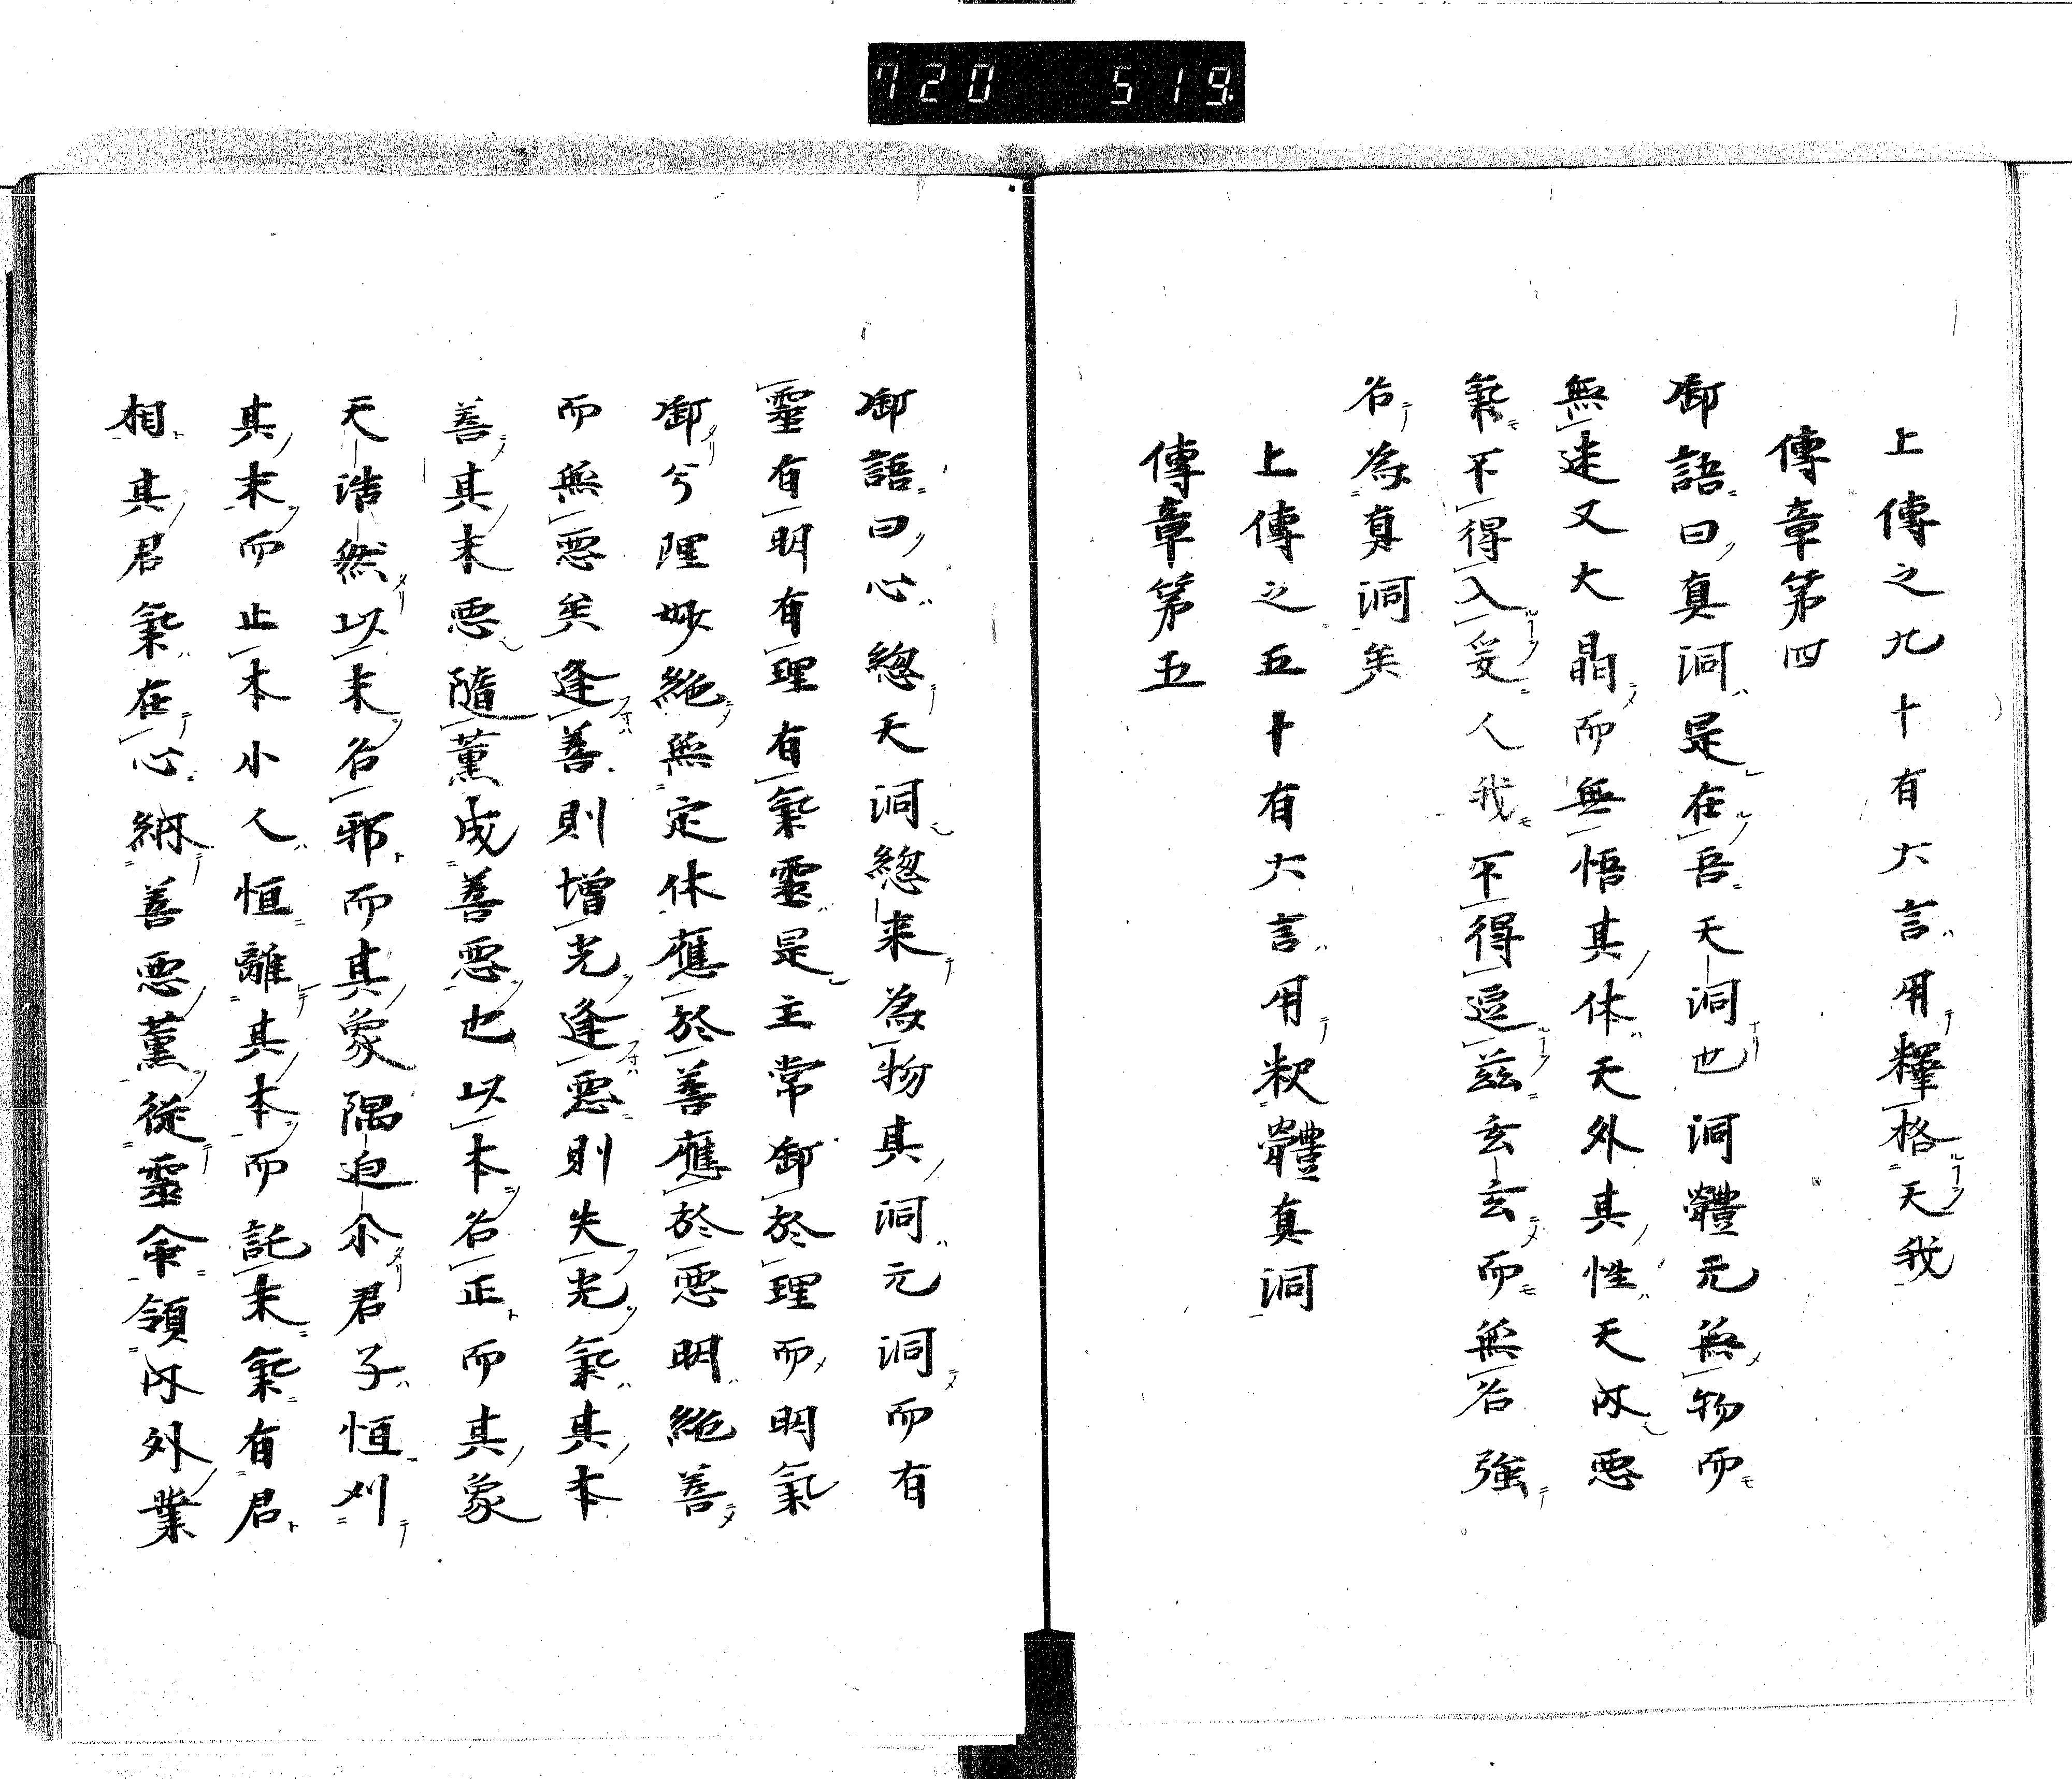 720 519
上傳之九十有六言用釋格天我
傳章第四
御語曰真洞是在吾天洞也洞體元無物而
無迷又大晶而無悟其体天外其性天内悪
氣不得入妄人我不得逗茲玄玄而無名強
名為真洞矣
上傳之五十有六言用釈體真洞
傳章第五
御語曰心總天洞總来為物其洞元洞而有
靈有明有理有氣靈是主常御於理而明氣
御兮理妙絶無定休應於善應於悪明絶善
而無悪矣逢善則增光逢悪則失光氣其本
善其末悪隨薫成善悪也以本名正而其象
天浩然以末名邪而其象隅迫尒君子恒刈
其末而止本小人恒離其本而託末氣有君
相其君氣在心納善悪薫従靈命領内外業